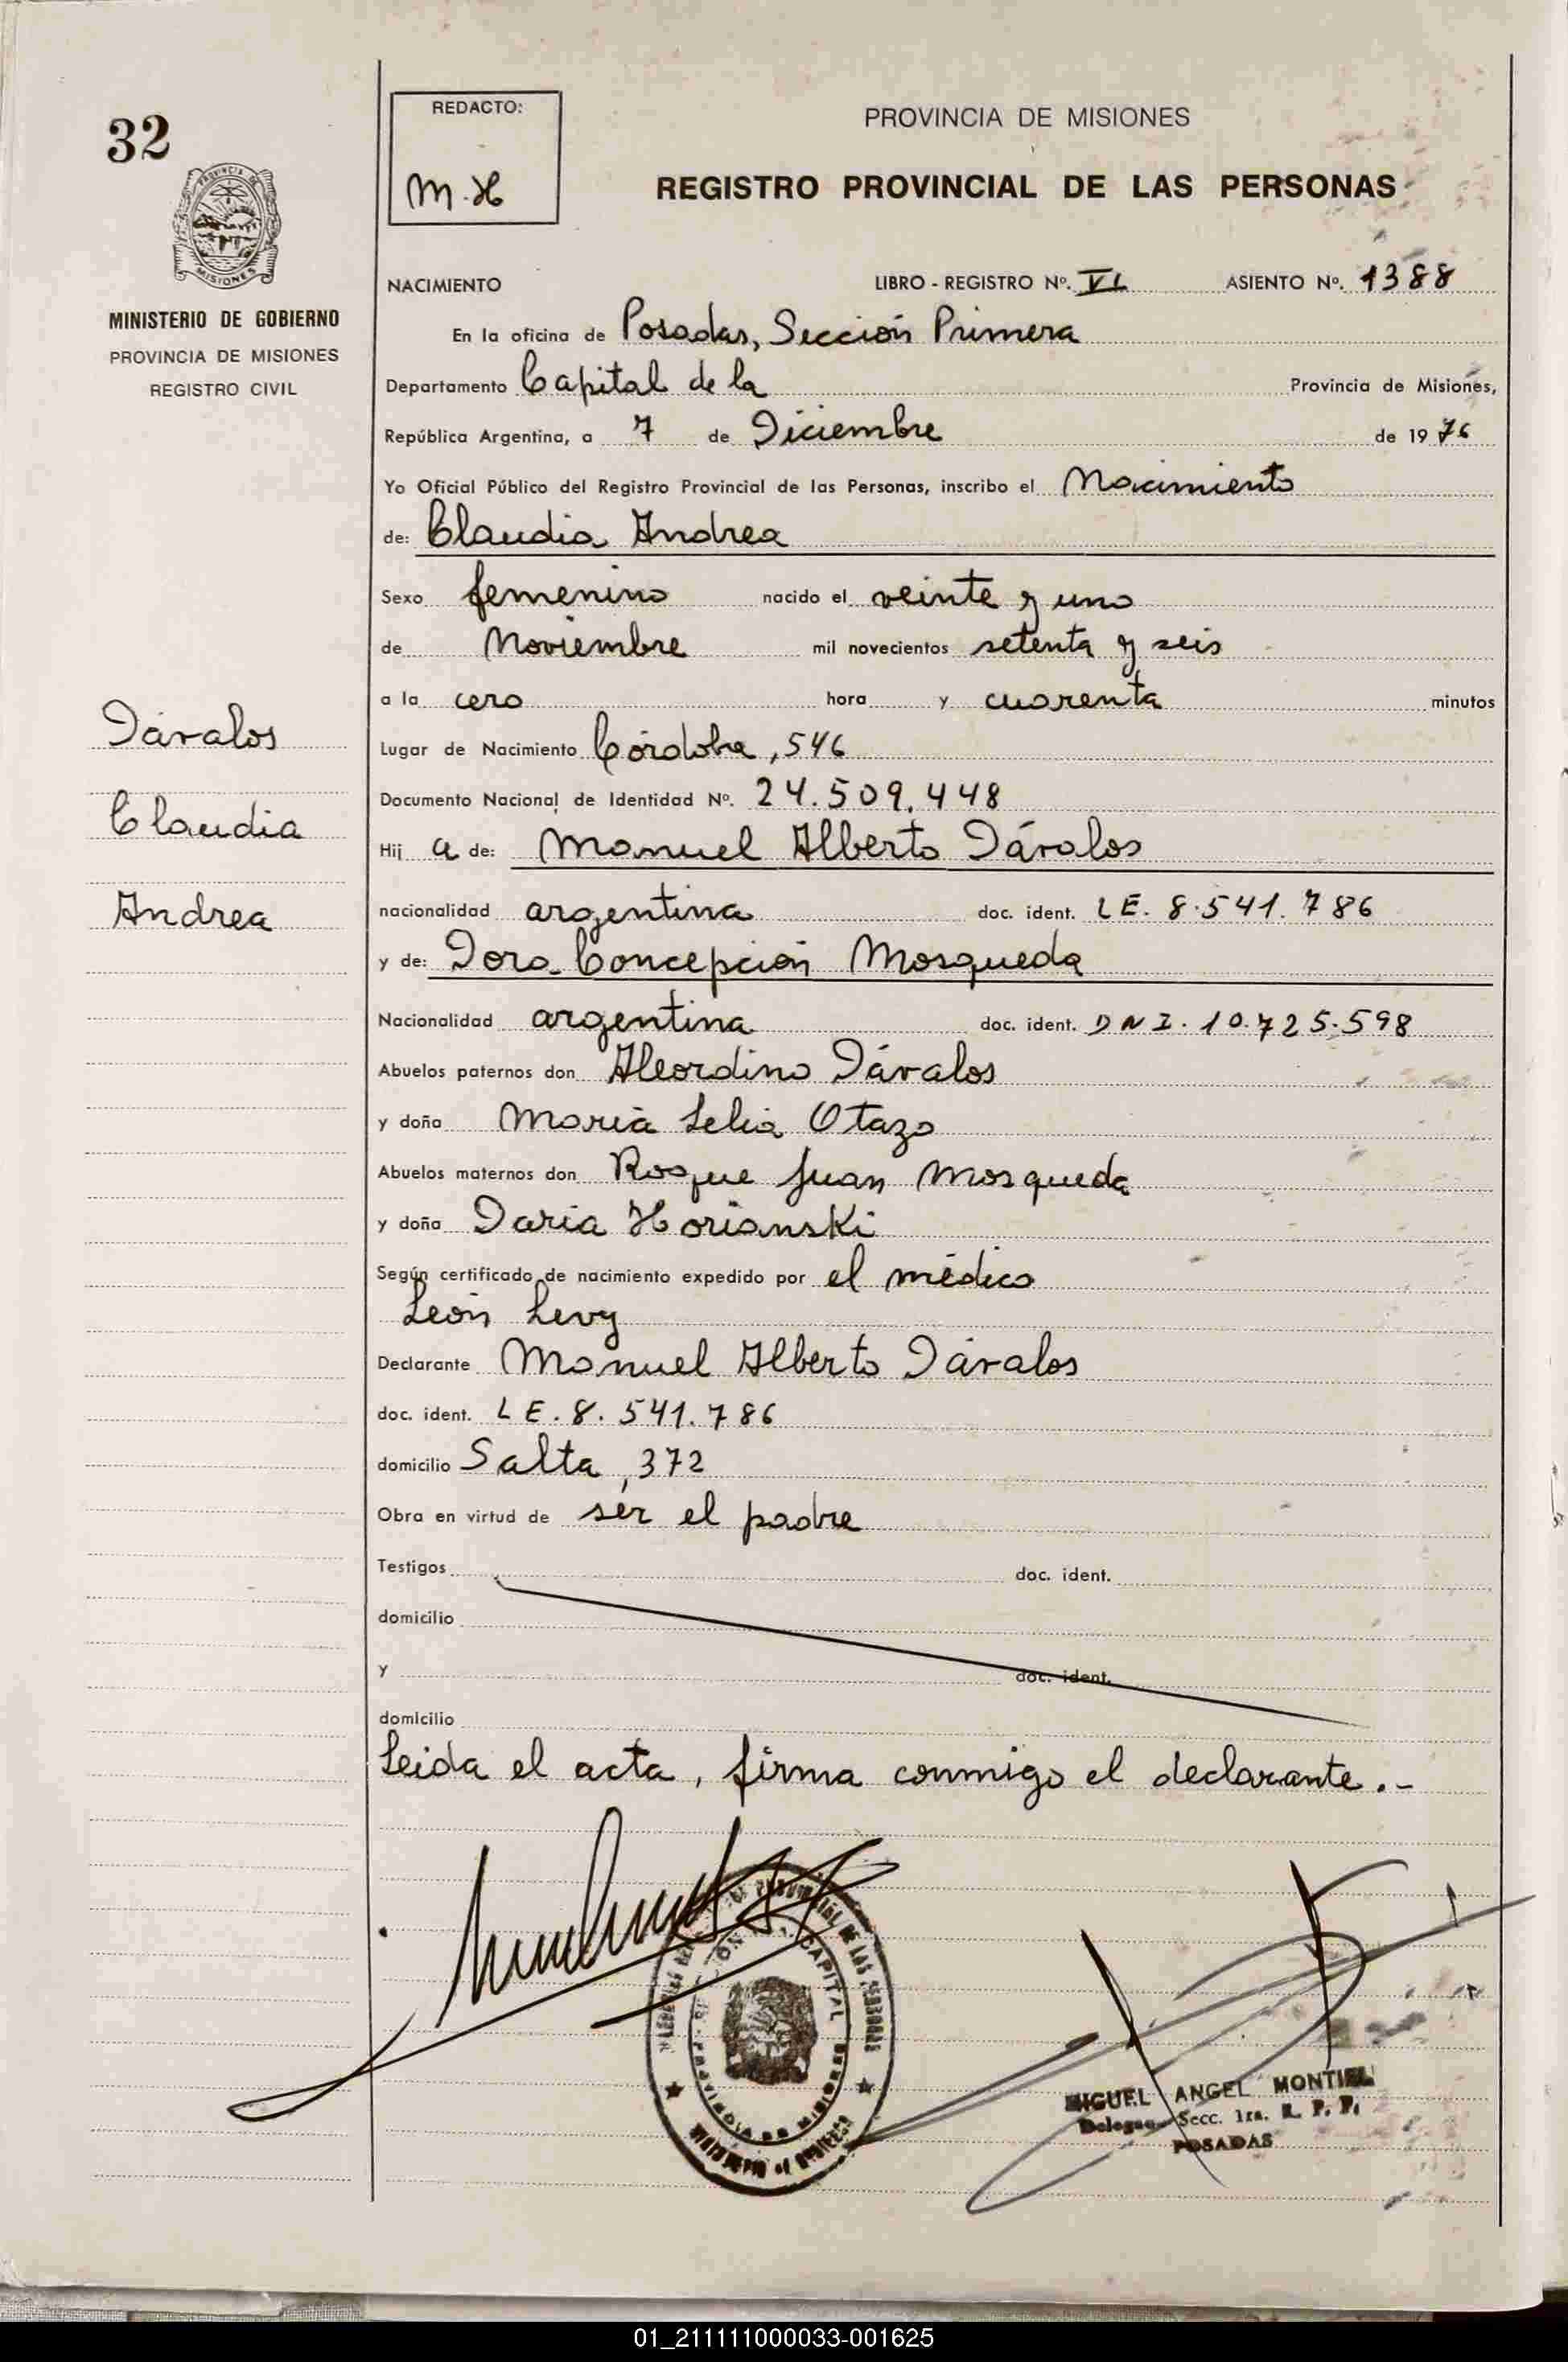 32
PROVINCIA DE
MISIONES
MINISTERIO DE GOBIERNO
PROVINCIA DE MISIONES
REGISTRO CIVIL
Dávalos
Claudia
Andrea
REDACTO:
M.H
PROVINCIA DE MISIONES
REGISTRO PROVINCIAL DE LAS PERSONAS
NACIMIENTO LIBRO - REGISTRO Nº. VI ASIENTO Nº. 1388
En la oficina de Posadas, Sección Primera
Departamento Capital de la Provincia de Misiones,
República Argentina, a 7 de Diciembre de 1976
Yo Oficial Público del Registro Provincial de las Personas, inscribo el Nacimiento
de: Claudia Andrea
Sexo femenino nacido el veinte y uno
de Noviembre mil novecientos setenta y seis
a la cero hora y cuarenta minutos
Lugar de Nacimiento Córdoba, 546
Documento Nacional de Identidad Nº. 24.509.448
Hij a de: Manuel Alberto Dávalos
nacionalidad argentina doc. ident. LE. 8.541.786
y de: Dora Concepción Mosqueda
Nacionalidad argentina doc. ident. DNI. 10.725.598
Abuelos paternos don Aleordino Dávalos
y doña María Lelia Otazo
Abuelos maternos don Roque Juan Mosqueda
y doña Daria Horianski
Según certificado de nacimiento expedido por el médico
León Levy
Declarante Manuel Alberto Dávalos
doc. ident. LE. 8.541.786
domicilio Salta, 372
Obra en virtud de ser el padre
Testigos doc. ident.
domicilio
y doc. ident.
domicilio
Leida el acta, firma conmigo el declarante.-
PROVINCIAL DE LAS PERSONAS
CAPITAL
PROVINCIA DE MISIONES
MINISTERIO DE GOBIERNO
MIGUEL ANGEL MONTIEL
Delegado Secc. 1ra. R. P. P.
POSADAS
01_211111000033-001625